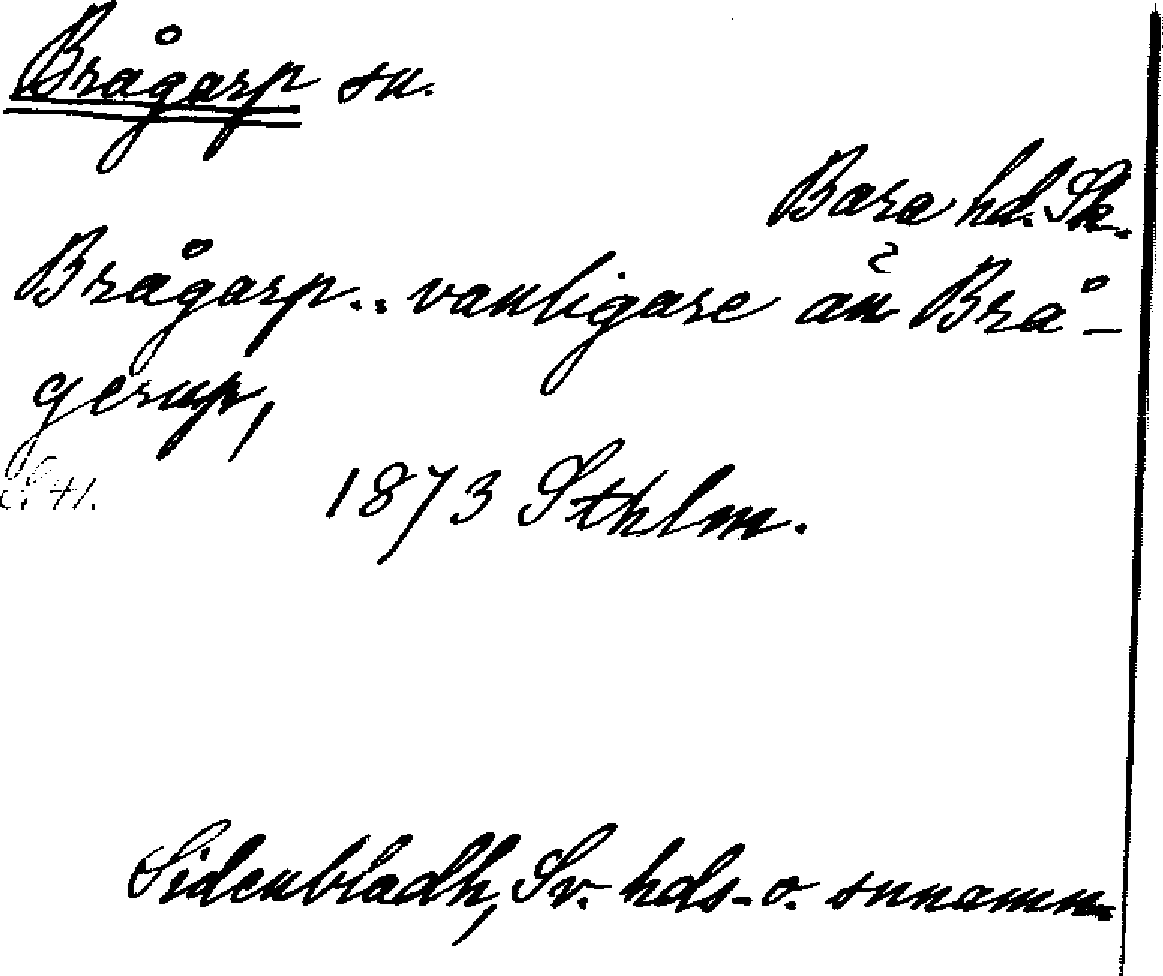 Brågarp sn.
Bara hd. Sk.
Brågarp.. vanligare än Brå-
gerup,
1873 Sthlm.
Sidenbladh, Sv. hds- o. snnamn.